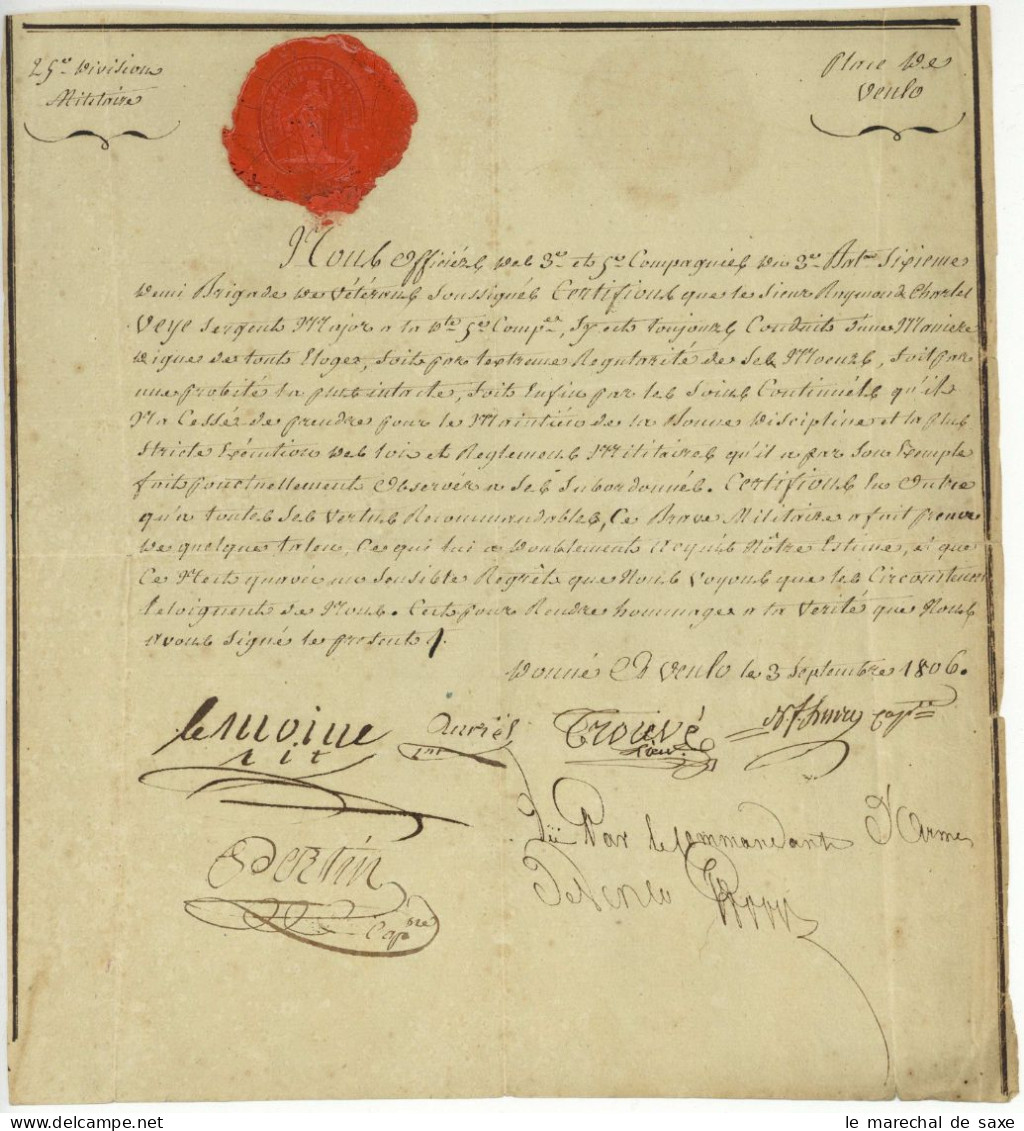 25me Division
Militaire
Place De
Venlo
Nous Officiérs des 3e et 5e Compagnies du 3e Baton Sixieme
demi Brigade de Vétérans Soussignés Certifions que le Sieur Raymond Charles
Veye Sergent Major a la dte 5e Compée, S'y est toujours Conduit d'une Maniere
digne de touts Eloges, Soit par l'extreme Regularité de Ses Moeurs, Soit par
une probité la plus intacte, Soit Enfin par les Soins Continuels qu'il
Na Cessé de prendre pour le Maintien de la Bonne discipline et la plus
Stricte Exécution des loix et Reglemens Militaires qu'il a par Son Exemple
fait ponctuellement Observér a Ses Subordonnés. Certifions En Outre
qu'a toutes Ses Vertus Recommandables, Ce Brave Militaire a fait preuve
de quelque talens, Ce qui lui a doublement Acquis Nôtre Estime, et que
Ce N'est qu'avec un Sensible Regrêt que Nous Voyons que les Circonstances
l'eloignent de Nous. C'est pour Rendre hommage a la Verité que Nous
Avons Signé le present
Donné A Venlo le 3 Septembre 1806.
le Moine Auriel Trouvé
Lieut
Vü Par le Commandant D'Armes
De Venlo
Bertin
Capne
le marechal de saxe